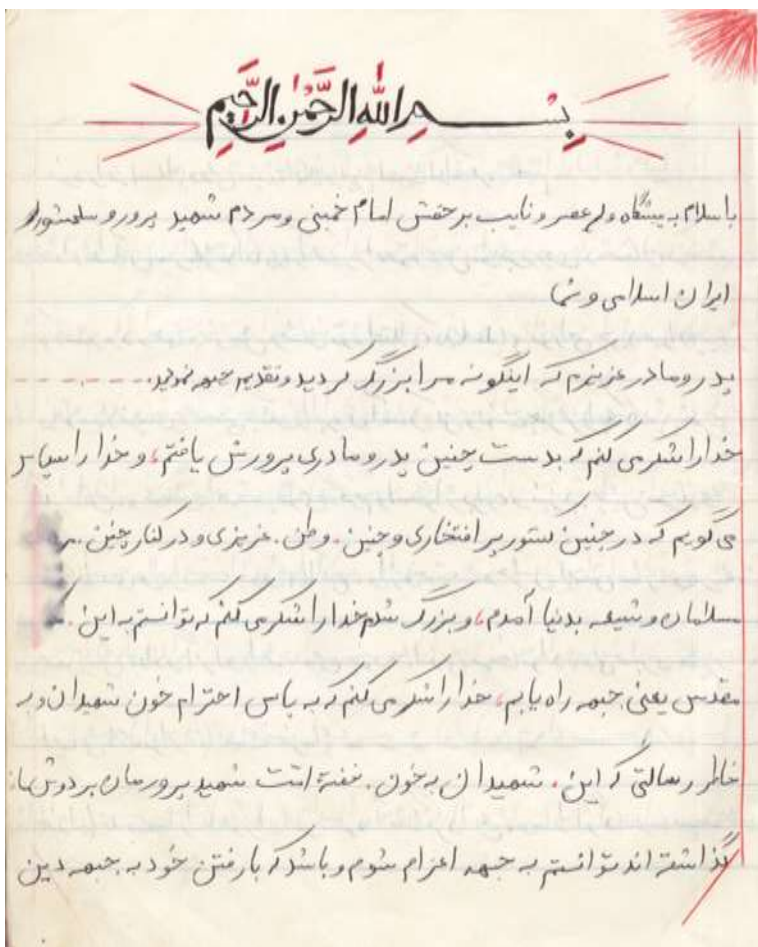 بِسْمِ اللهِ الرَّحْمٰنِ الرَّحِیمِ
باسلام به پیشگاه ولی عصر و نایب برحقش امام خمینی و مردم شهید پرور و سلحشور
ایران اسلامی و شما
پدر و مادر عزیزم که اینگونه مرا بزرگ کردید و تقدیم جبهه نمودید.
خدا را شکر می کنم که بدست چنین پدر و مادری پرورش یافتم، و خدا را سپاس
می گویم که در چنین کشور پر افتخاری و چنین. وطن. عزیزی و در کنار چنین.
مسلمان و شیعه بدنیا آمدم، و بزرگ شدم خدا را شکر می کنم که توانستم به این.
مقدس یعنی جبهه راه یابم، خدا را شکر می کنم که به پاس احترام خون شهیدان و به
خاطر رسالتی که این. شهیدان به خون. خفتهٔ امت شهید پرورمان بر دوش ما
گذاشته اند توانستم به جبهه اعزام شوم و باشد که با رفتن خود به جبهه دین